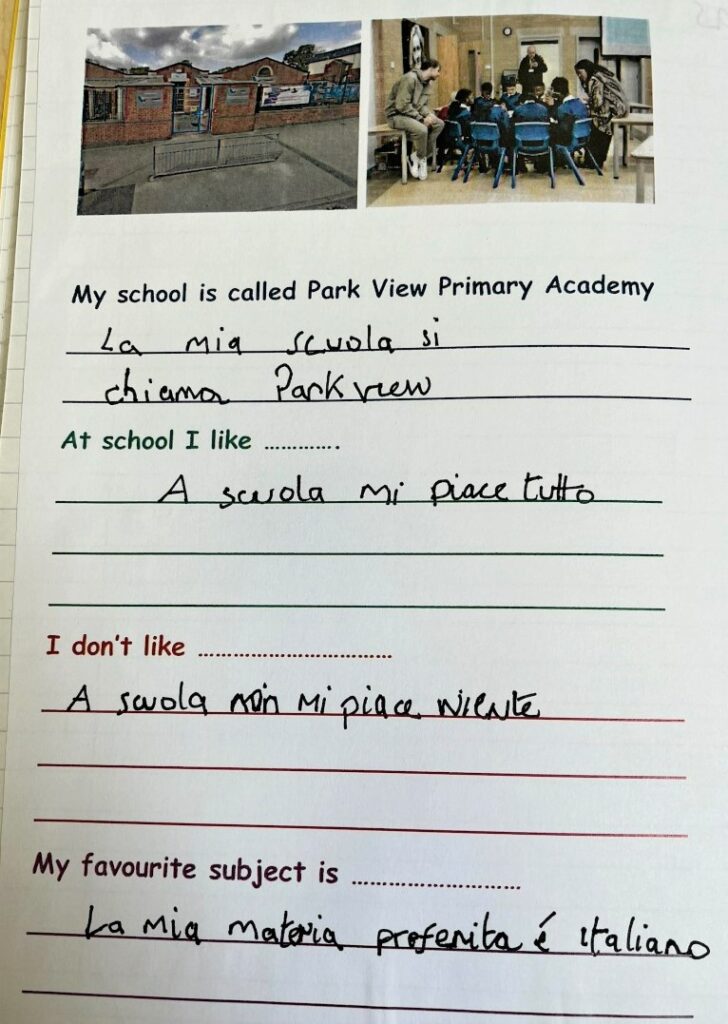 My school is called Park View Primary Academy
La mia scuola si
chiama Parkview
At school I like ………….
A scuola mi piace tutto
I don't like ……………………………
A scuola non mi piace niente
My favourite subject is ……………………
La mia materia preferita é italiano